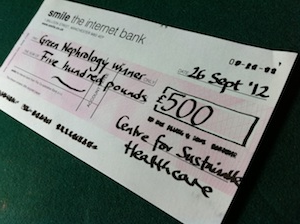 smile the internet bank
26 Sept '12
Green Nephrology Winner
Five hundred pounds
£ 500
Centre for Sustainable
Healthcare